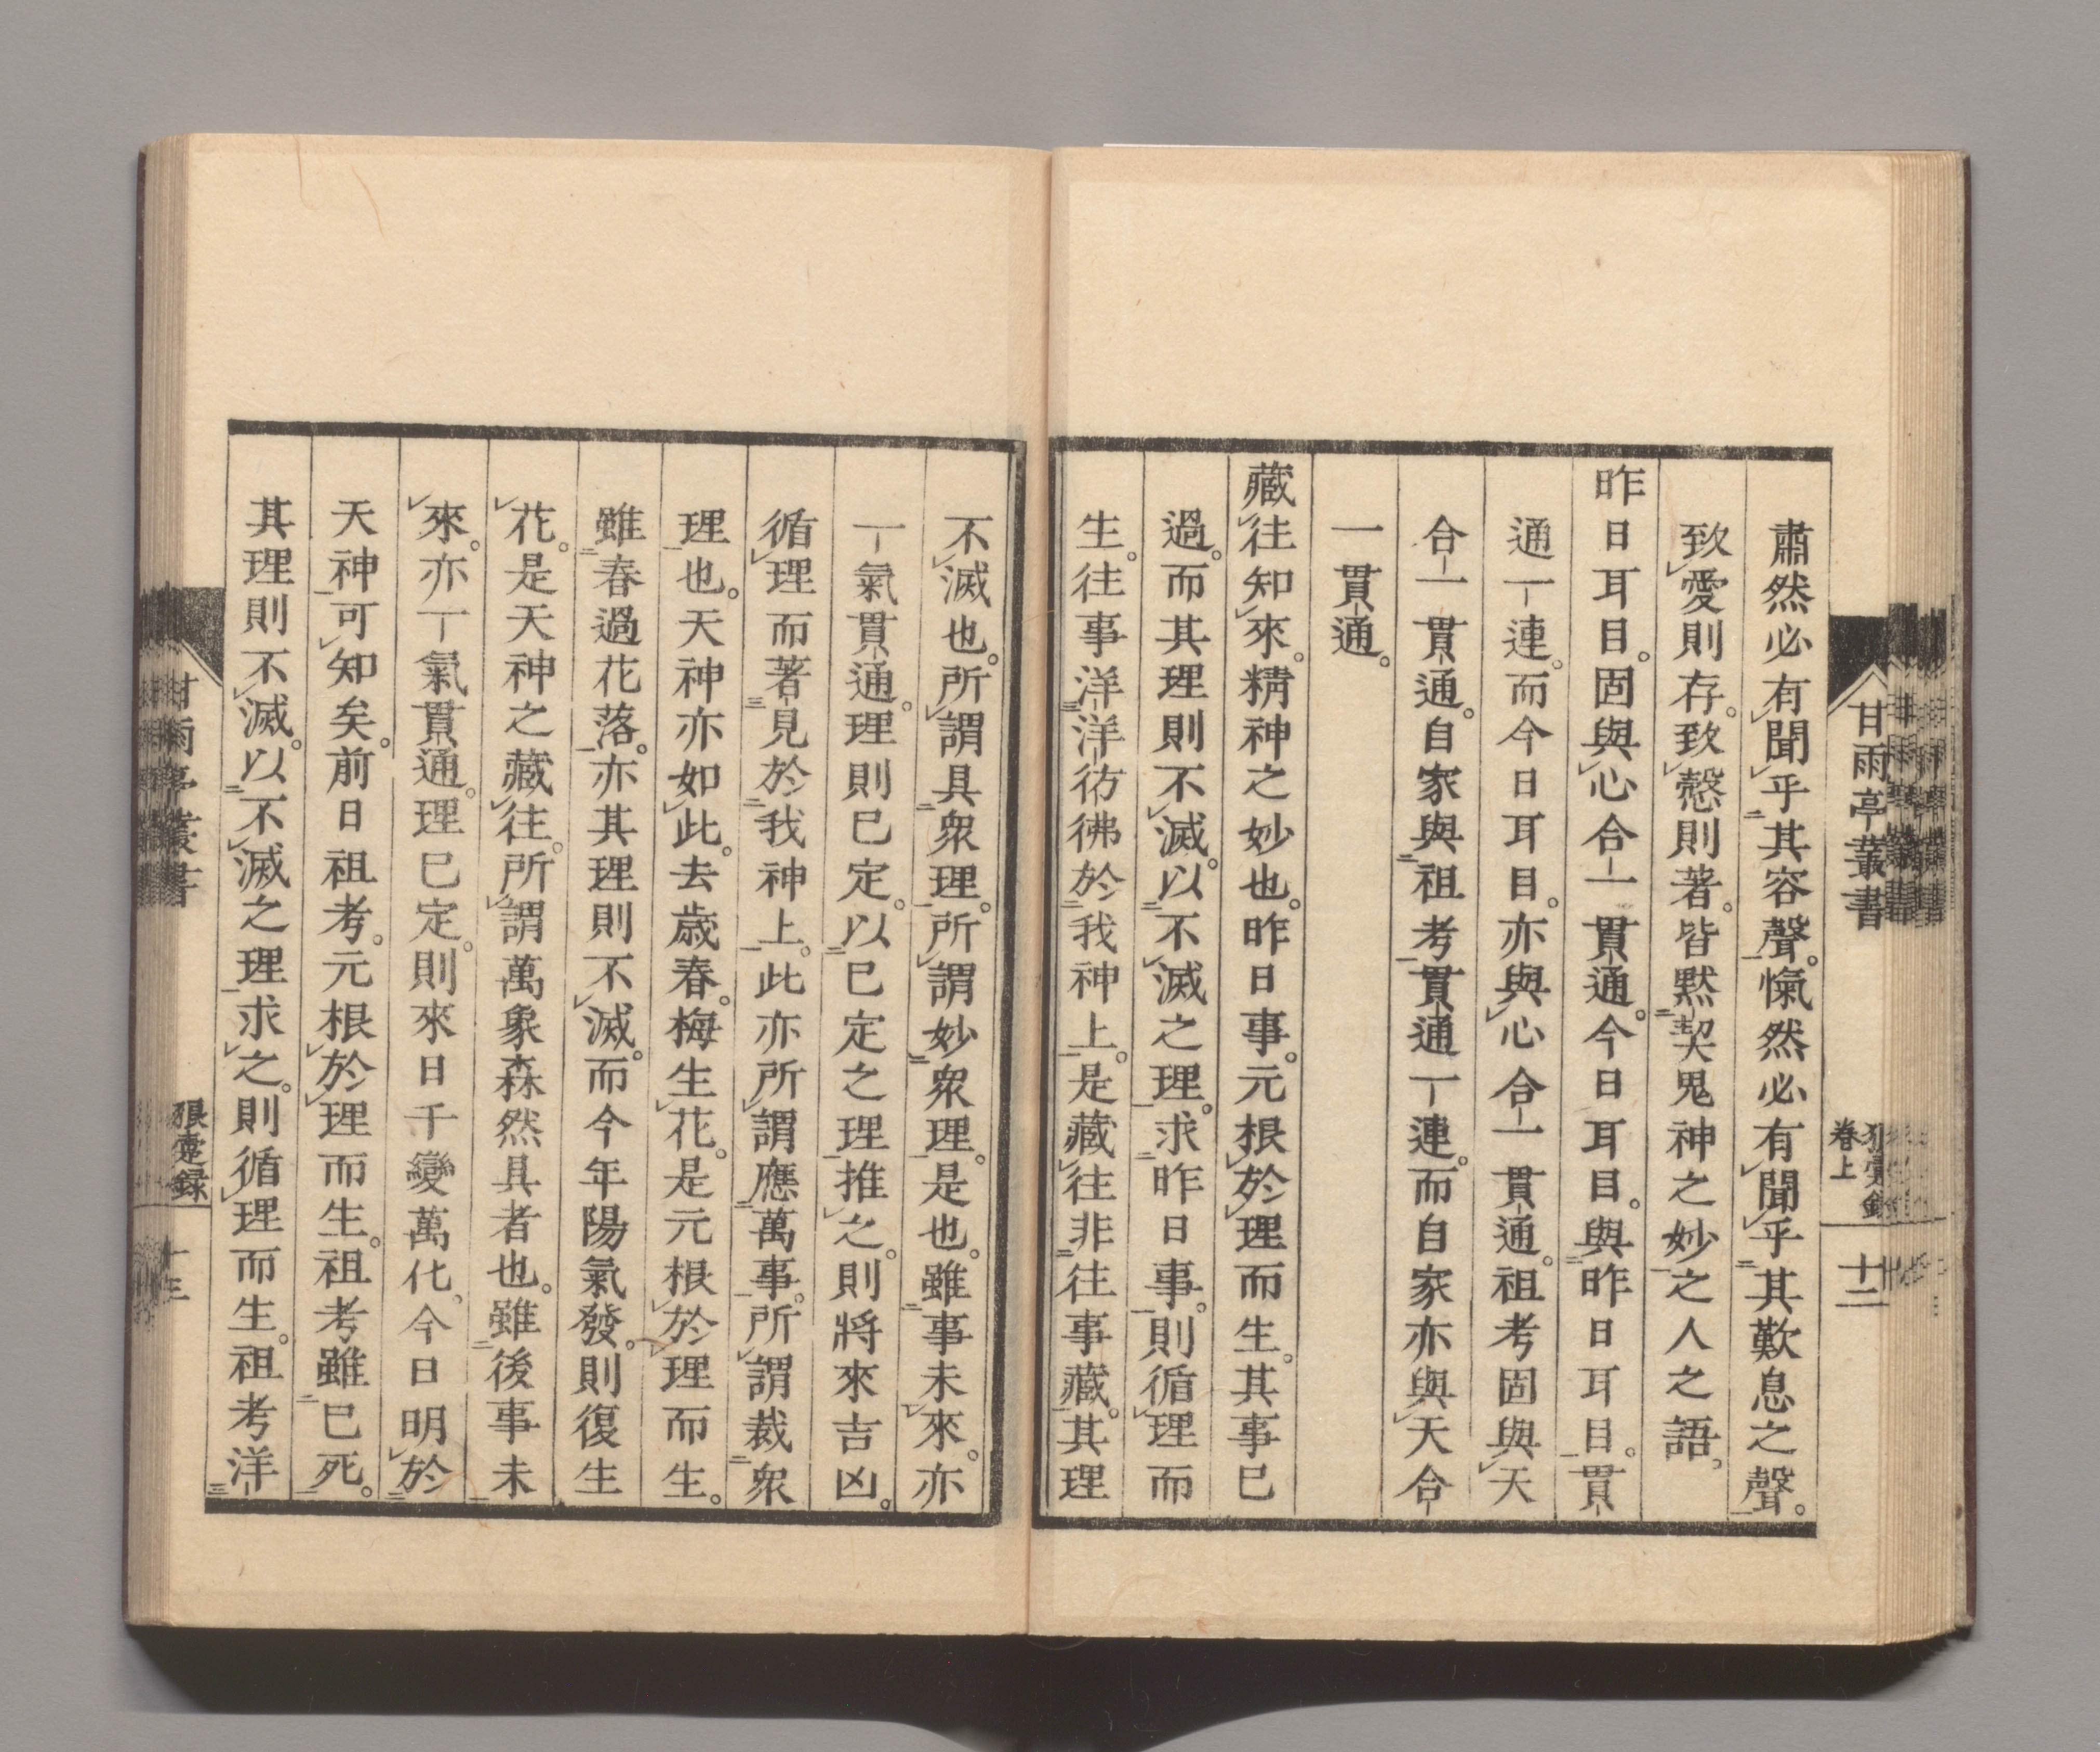 甘雨亭叢書
卷上
十二
肅然必有聞乎其容聲。愾然必有聞乎其歎息之聲。
致愛則存。致慤則著。皆默契鬼神之妙之人之語。
昨日耳目。固與心合一貫通。今日耳目。與昨日耳目。貫
通一連。而今日耳目。亦與心合一貫通。祖考固與天
合一貫通。自家與祖考貫通一連。而自家亦與天合
一貫通。
藏往知來。精神之妙也。昨日事。元根於理而生。其事已
過。而其理則不滅。以不滅之理。求昨日事。則循理而
生。往事洋洋彷彿於我神上。是藏往非往事藏。其理
不滅也。所謂具衆理。所謂妙衆理。是也。雖事未來。亦
一氣貫通。理則已定。以已定之理推之。則將來吉凶。
循理而著見於我神上。此亦所謂應萬事。所謂裁衆
理也。天神亦如此。去歲春。梅生花。是元根於理而生。
雖春過花落。亦其理則不滅。而今年陽氣發。則復生
花。是天神之藏往。所謂萬象森然具者也。雖後事未
來。亦一氣貫通。理已定。則來日千變萬化。今日明於
天神可知矣。前日祖考。元根於理而生。祖考雖已死。
其理則不滅。以不滅之理求之。則循理而生。祖考洋
甘雨亭叢書
狼疐録
十三